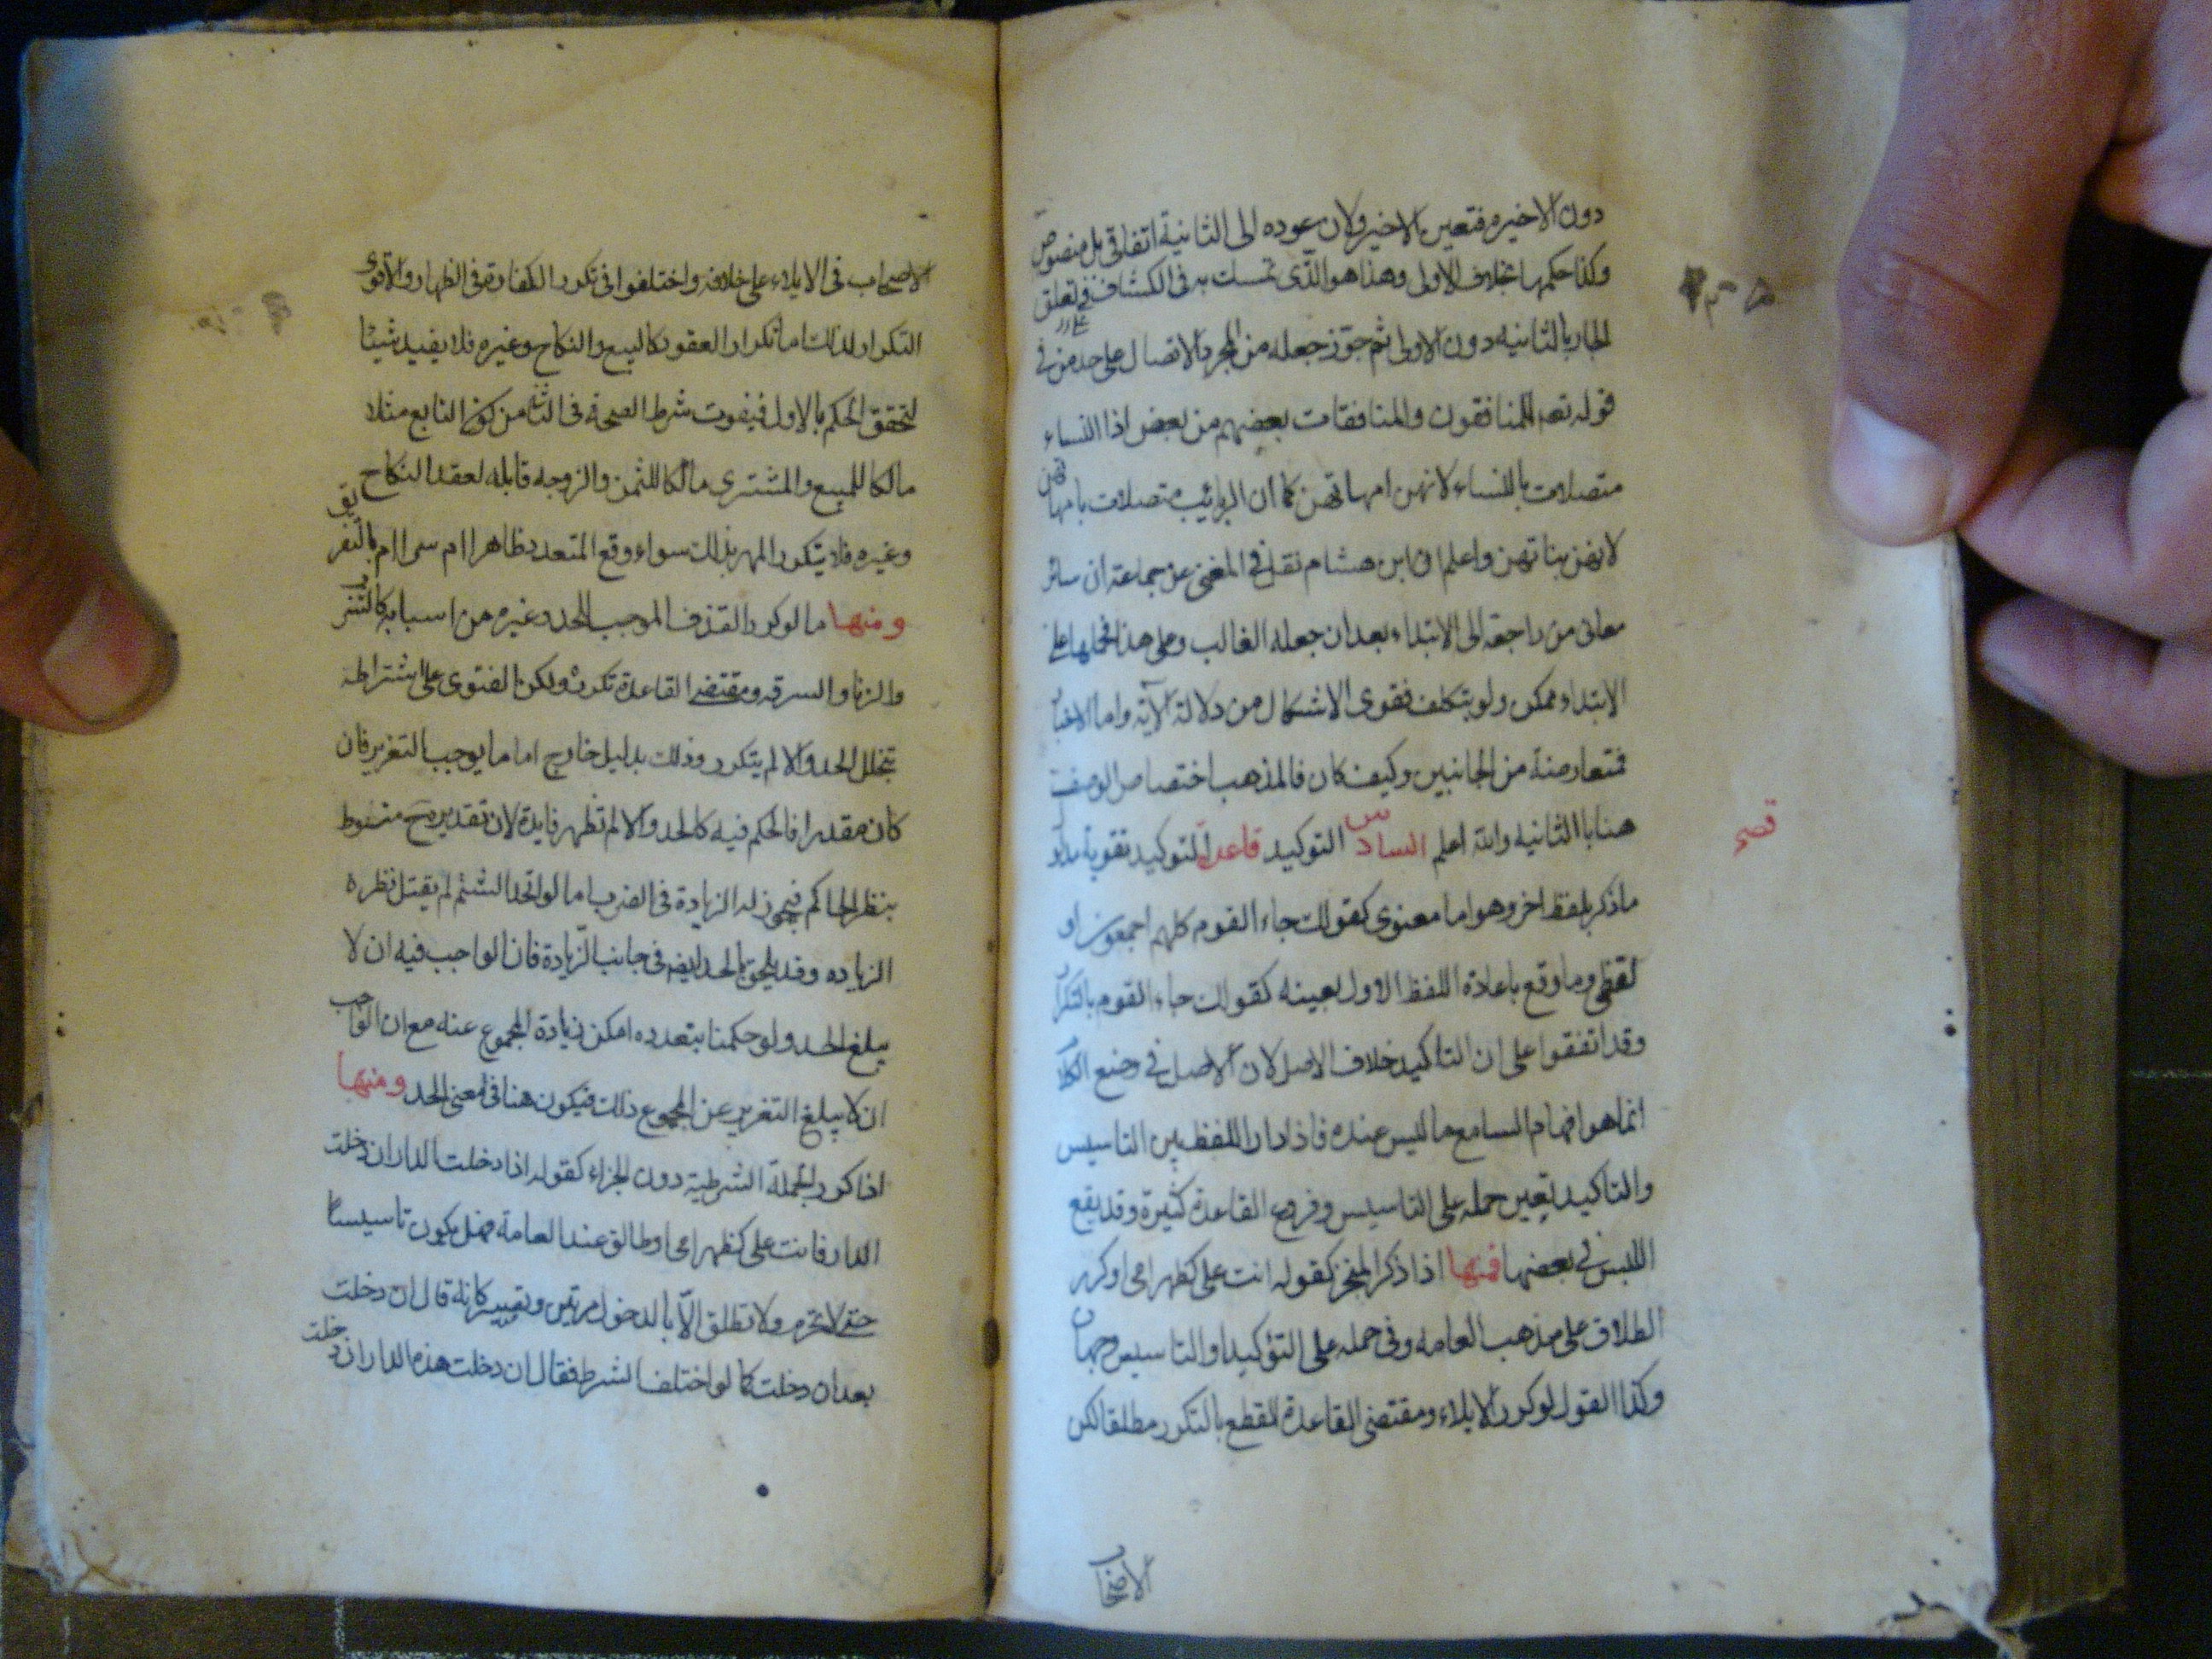 دون الاخيره فتعين الاخير ولان عوده الى الثانية اتفاقى بل منصوص
وكذا حكمها بخلاف الاولى وهذا هو الذى تمسك به فى الكشاف فى تعلق
الجار بالثانيه دون الاولى ثم جوز جعله من المجرد الاتصال على حد من فى
قوله تعه المنافقون والمنافقات بعضهم من بعض اذا النساء
متصلات بالنساء لانهن امهاتهن كما ان الربائب متصلات بامهاتهن
لانهن بناتهن واعلم ان ابن هشام نقل فى المغنى عن جماعة ان سائر
معانى من راجعة الى الابتداء بعد ان جعله الغالب وعلى هذا فحملها على
الابتداء ممكن ولو بتكلف فقوى الاشكال من دلالة الآية واما الاخبار
فمتعارضة من الجانبين وكيف كان فالمذهب اختصاص الوصف
هنا بالثانيه والله اعلم السادس التوكيد قاعدة التوكيد تقوية مدلول
ما ذكر بلفظ اخر وهو اما معنوى كقولك جاء القوم كلهم اجمعون او
لفظى وما وقع باعادة اللفظ الاول بعينه كقولك جاء القوم بالتكرار
وقد اتفقوا على ان التاكيد خلاف الاصل لان الاصل فى وضع الكلام
انما هو افهام السامع ما ليس عنده فاذا دار اللفظ بين التاسيس
والتاكيد تعين حمله على التاسيس وفروع القاعدة كثيرة وقد يقع
اللبس فى بعضها فمنها اذا ذكر المنجز كقوله انت على كظهر امى او كرر
الطلاق على مذهب العامه وفى حمله على التؤكيد او التاسيس وجهان
وكذا القول لو كرر الايلاء ومقتضى القاعدة القطع بالتكرر مطلقا لكن
الاصحاب
الاصحاب فى الايلاء على خلافه واختلفوا فى تكرر الكفارة فى الظهار والاقوى
التكرار لذلك اما تكرار العقود كالبيع والنكاح وغيره فلا يفيد شيئا
لتحقق الحكم بالاول فيفوت شرط الصحة فى الثانى من كون البايع مثلا
مالكا للمبيع والمشترى مالكا للثمن والزوجه قابلة لعقد النكاح
وغيره فلا يتكرر المهر بذلك سواء وقع المتعدد ظاهرا ام سرا ام بالتفريق
ومنها ما لو كرر القذف الموجب للحد وغيره من اسبابه كالشرب
والزنا والسرقه ومقتضى القاعدة تكرره ولكن الفتوى على اشتراطه
بتخلل الحد والا لم يتكرر وذلك بدليل خارج اما ما يوجب التعزير فان
كان مقدرا فالحكم فيه كالحد والا لم تظهر فايدة لان تقديره ح منوط
بنظر الحاكم فيجوز له الزيادة فى الضرب اما لو اتحد الشتم لم يقبل نظره
الزياده وقد يلحق بالحد ايضا فى جانب الزيادة فان الواجب فيه ان لا
يبلغ الحد ولو حكمنا بتعدده امكن زيادة المجموع عنه مع ان الواجب
ان لا يبلغ التعزير عن المجموع ذلك فيكون هنا فى معنى الحد ومنها
اذا كرر الجملة الشرطية دون الجزاء كقوله اذا دخلت الدار ان دخلت
الدار فانت على كظهر امى او طالق عند العامة فهل يكون تاسيسا
حتى لا تحرم ولا تطلق الا بالدخول مرتين ويصير كانه قال ان دخلت
بعد ان دخلت كما لو اختلف الشرط فقال ان دخلت هذه الدار ان دخلت